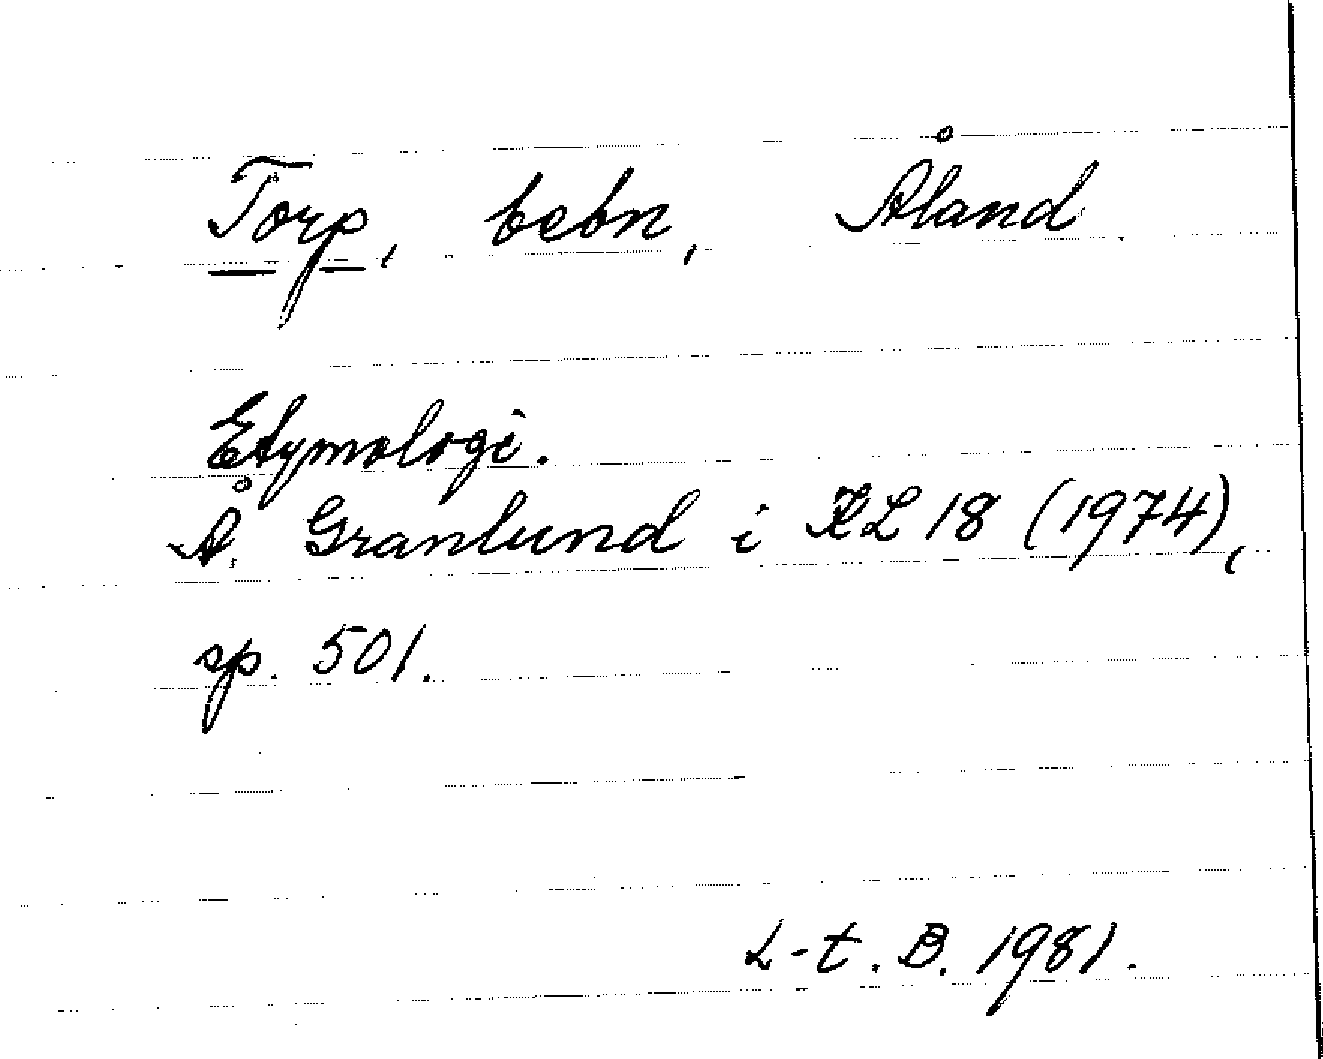 Torp, bebn, Åland
Etymologi.
Å. Granlund i KL 18 (1974),
sp. 501.
L-t. B. 1981.